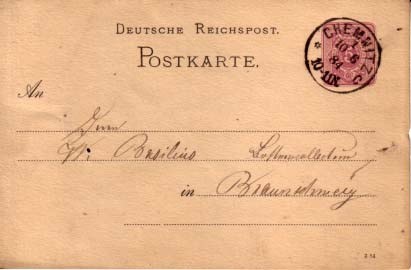 DEUTSCHE REICHSPOST.
POSTKARTE.
* CHEMNITZ * C
1
10 6
84
10-11V.
An
Herrn
W. Basilius Lotteriecollecteur
in Braunschweig